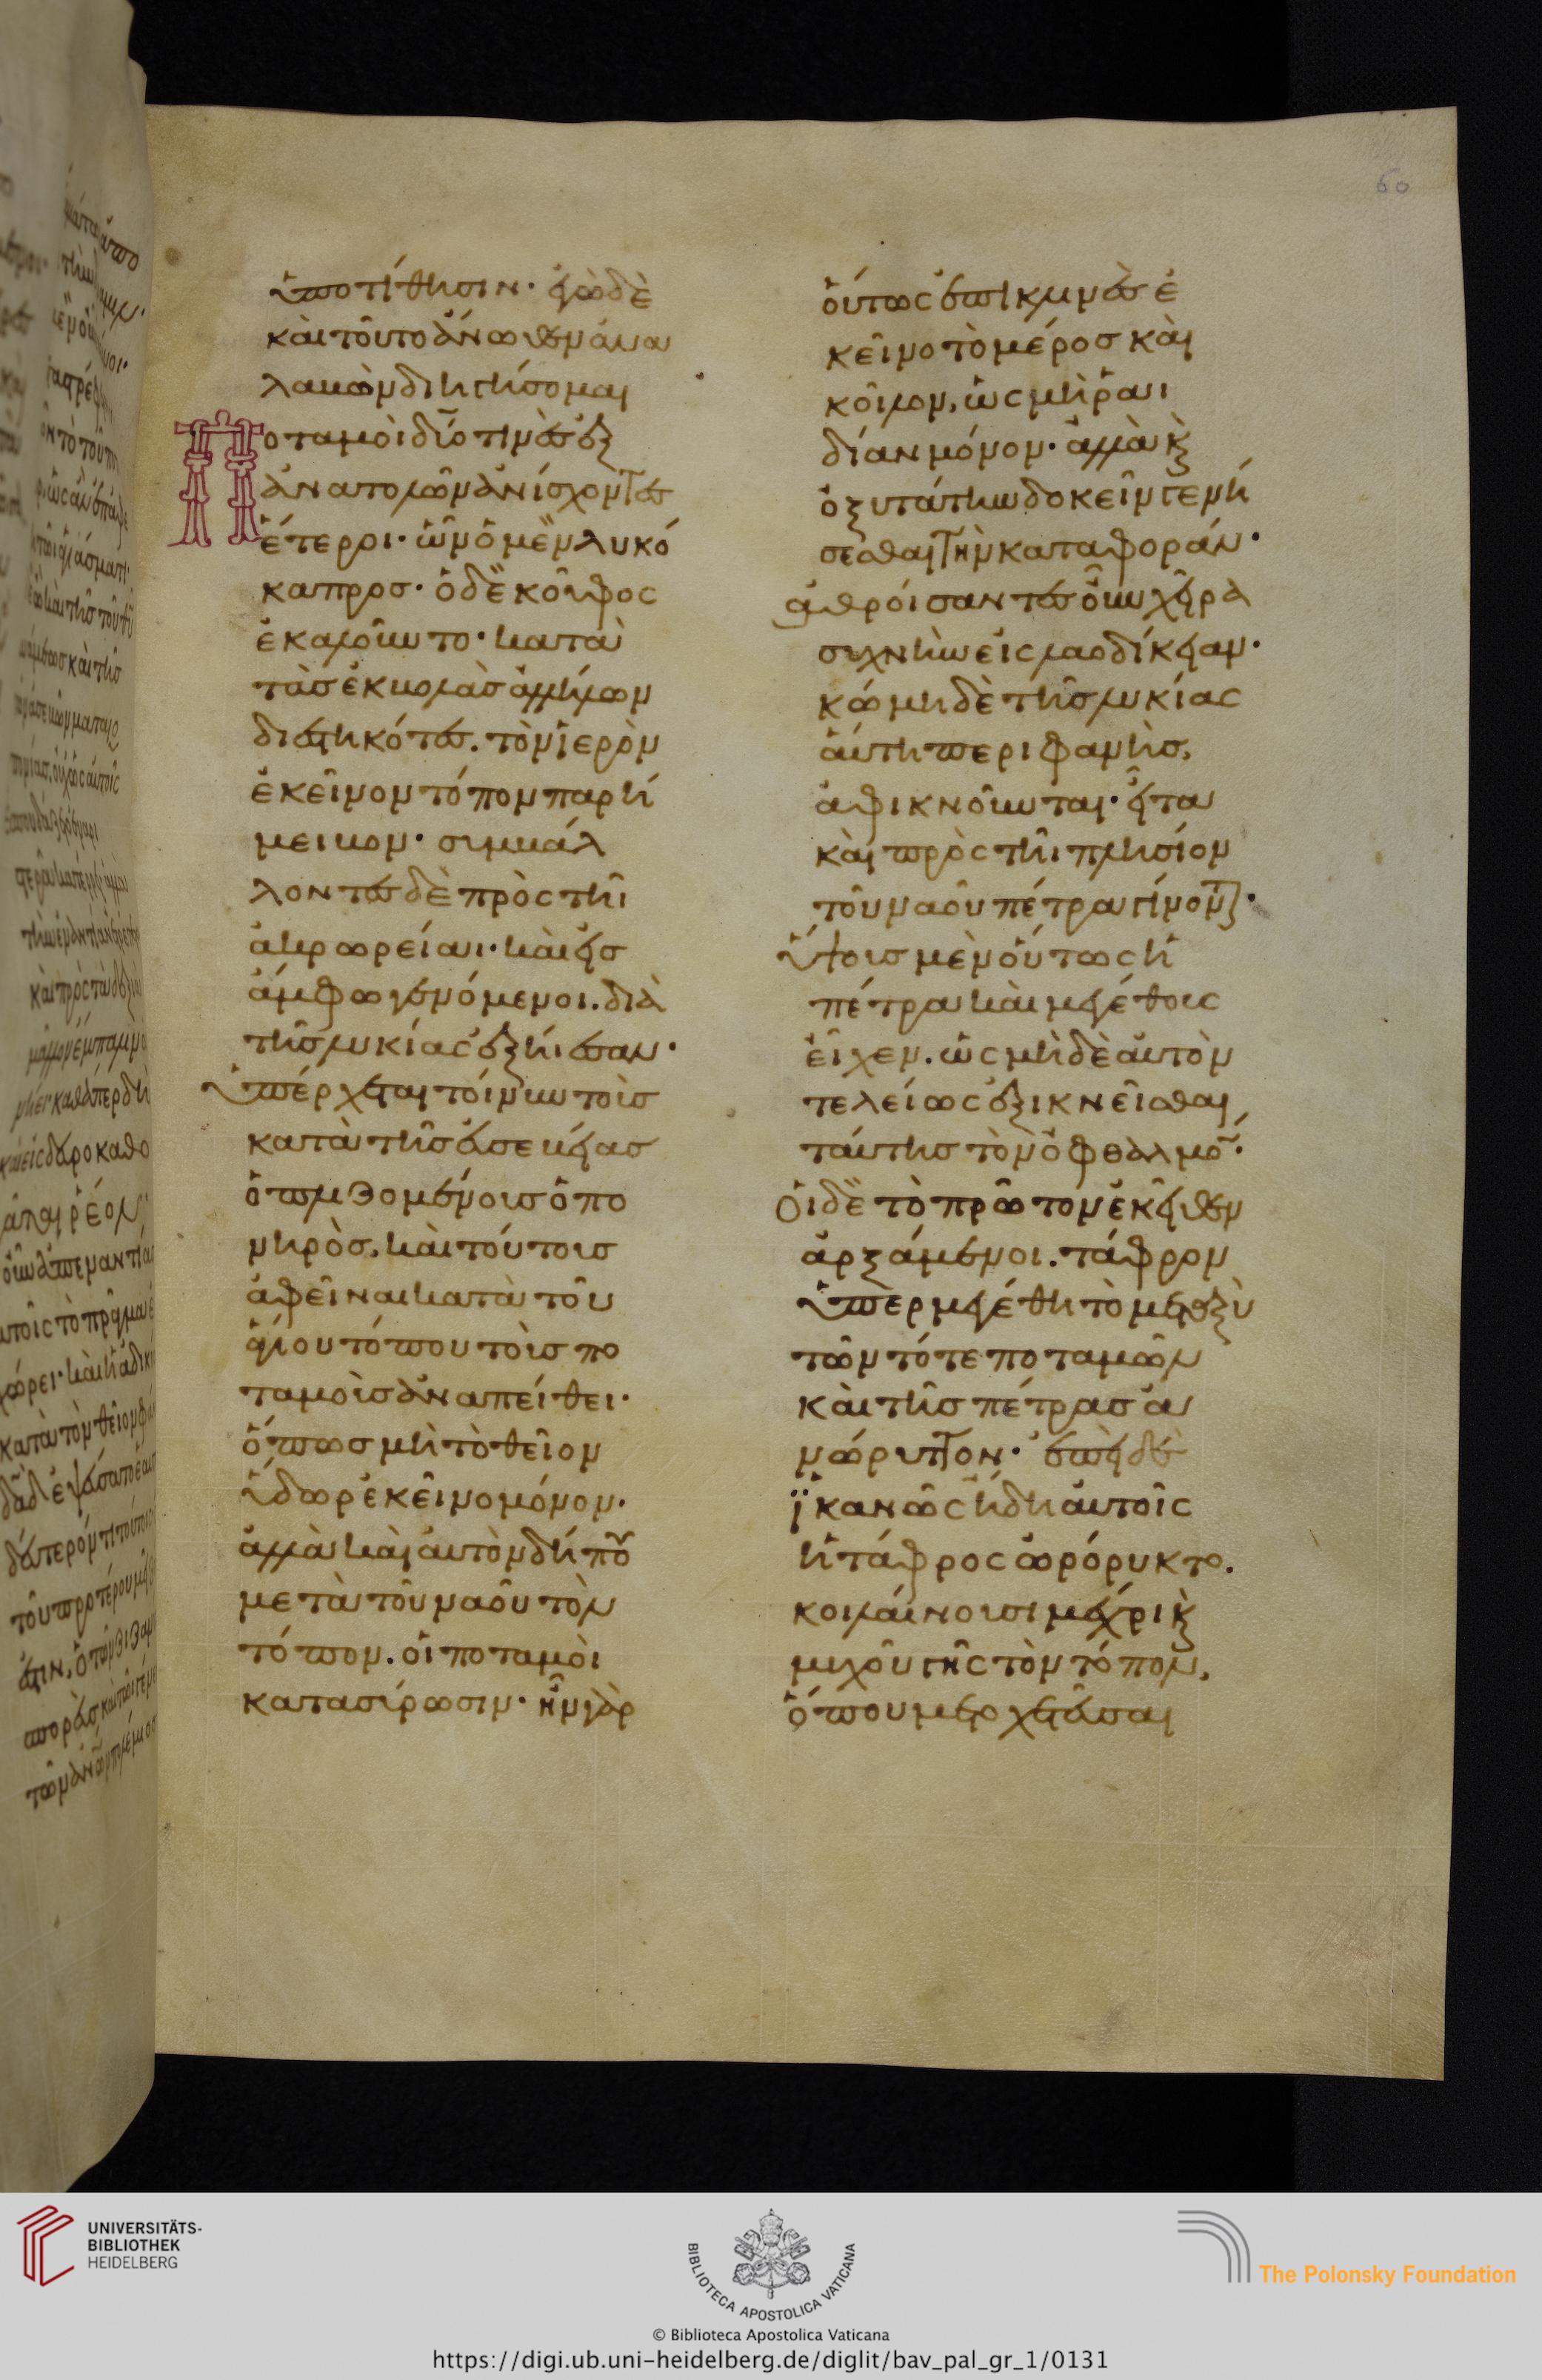 ὑποτίθησιν· ἐγὼ δὲ
καὶ τοῦτο ἄνωθεν ἀνα
λαβὼν διηγήσομαι
Ποταμοὶ δύο τινὲς ἐξ
ἀνατολῶν ἀνίσχοντες
ἕτεροι· ὧν ὁ μὲν λυκό
καπρος· ὁ δὲ κοῦφος
ἐκαλοῦντο· κατὰ
τὰς ἐκβολὰς ἀλλήλων
διεστηκότες. τὸν ἱερὸν
ἐκεῖνον τόπον παρή
μειβον· συμβάλ
λοντες δὲ πρὸς τῆι
ἀκρωρείαι· καὶ εἷς
ἄμφω γενόμενοι. διὰ
τῆς λυκίας ἐξήιεσαν·
Ὑπέρχεται τοίνυν τοῖς
κατὰ τῆς εὐσεβείας
ὁπλιζομένοις ὁ πο
νηρὸς, καὶ τούτοις
ἀφεῖναι κατὰ τοῦ
ἁγίου τόπου τοὺς πο
ταμοὺς ἀναπείθει·
ὅπως μὴ τὸ θεῖον
ὕδωρ ἐκεῖνο μόνον·
ἀλλὰ καὶ αὐτὸν δήπου
μετὰ τοῦ ναοῦ τὸν
τόπον. οἱ ποταμοὶ
κατασύρωσιν· ἦν γὰρ
60
οὕτως ἐπικλινὲς ἐ
κεῖνο τὸ μέρος καὶ
κοῖλον, ὡς μὴ ῥαι
δίαν μόνον· ἀλλὰ κ
ὀξυτάτην δοκεῖν γενή
σεσθαι τὴν καταφοράν·
ἀθροίσαντες οὖν χεῖρα
συχνὴν εἰς λαοδίκειαν·
κώμη δὲ τῆς λυκίας
αὕτη περιφανὴς,
ἀφικνοῦνται· εἶτα
καὶ πρὸς τῆι πλησίον
τοῦ ναοῦ πέτρα γίνονται·
Ὕψους μὲν οὕτως ἡ
πέτρα καὶ μεγέθους
εἶχεν. ὡς μὴ δὲ αὐτὸν
τελείως ἐξικνεῖσθαι
ταύτης τὸν ὀφθαλμόν·
Οἱ δὲ τὸ πρῶτον ἐκεῖθεν
ἀρξάμενοι. τάφρον
ὑπερμεγέθη τὸ μεταξὺ
τῶν τότε ποταμῶν
καὶ τῆς πέτρας ἀ
νώρυττον· ἐπεὶ δὲ
ἱκανῶς ἤδη αὐτοῖς
ἡ τάφρος ὠρόρυκτο.
κοιλαίνουσι μέχρι κ
μυχοῦ γῆς τὸν τόπον,
ὅπου μετοχετεῦσαι
UNIVERSITÄTS-
BIBLIOTHEK
HEIDELBERG
BIBLIOTECA APOSTOLICA VATICANA
The Polonsky Foundation
© Biblioteca Apostolica Vaticana
https://digi.ub.uni-heidelberg.de/diglit/bav_pal_gr_1/0131